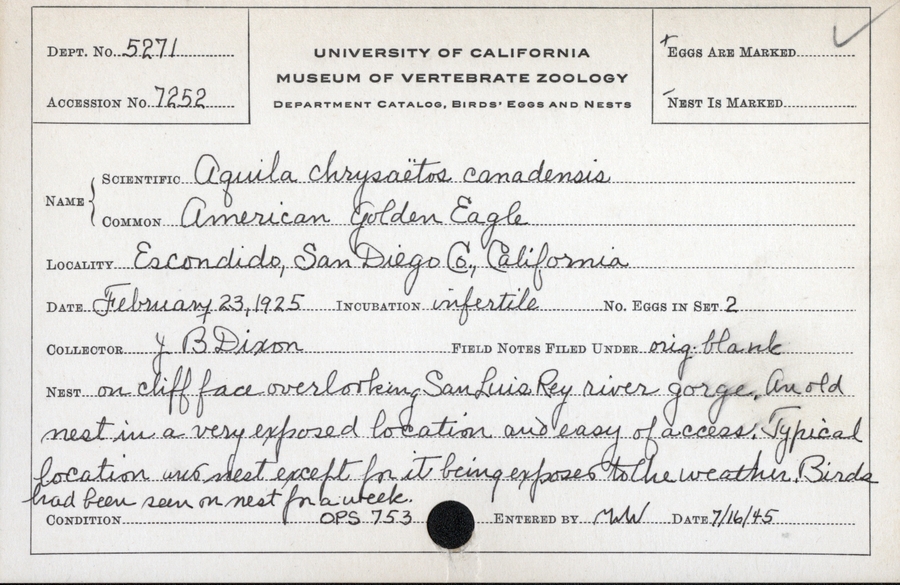 DEPT. No. 5271
ACCESSION No. 7252
UNIVERSITY OF CALIFORNIA
MUSEUM OF VERTEBRATE ZOOLOGY
DEPARTMENT CATALOG, BIRDS' EGGS AND NESTS
+ EGGS ARE MARKED ✓
- NEST IS MARKED
NAME
SCIENTIFIC Aquila chrysaëtos canadensis
COMMON American Golden Eagle
LOCALITY Escondido, San Diego Co., California
DATE February 23, 1925 INCUBATION infertile No. EGGS IN SET 2
COLLECTOR J B Dixon FIELD NOTES FILED UNDER orig. blank
NEST on cliff face overlooking San Luis Rey river gorge. An old
nest in a very exposed location and easy of access. Typical
location and nest except for it being exposed to the weather. Birds
had been seen on nest for a week.
CONDITION OPS 753 ENTERED BY MW DATE 7/16/45